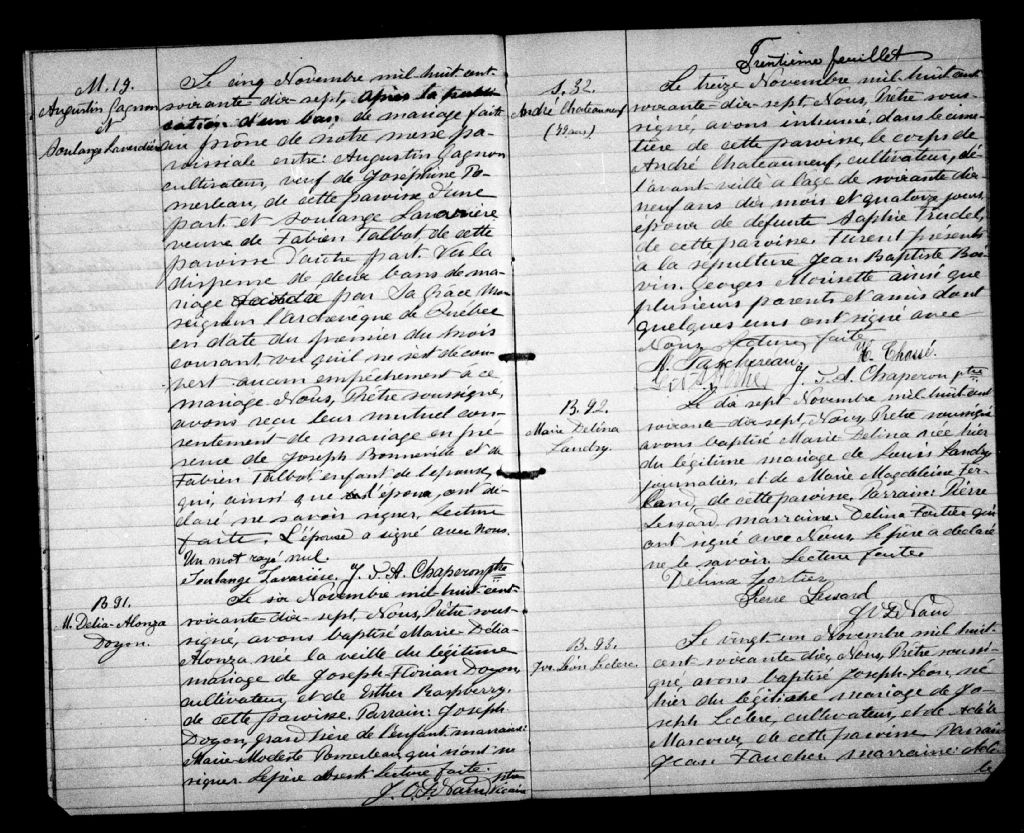 M. 19.
Augustin Gagnon
et
Soulange Laverdière
Le cinq Novembre mil-huit-cent-
soixante-dix-sept, après la publi-
cation d'un ban de mariage faite
au prône de nôtre messe pa-
roissiale entre: Augustin Gagnon
cultivateur, veuf de Joséphine Po-
merleau, de cette paroisse d'une
part et Soulange Lavarière
veuve de Fabien Talbot de cette
paroisse d'autre part. Vu la
dispense de deux bans de ma-
riage par Sa Grâce Mon-
seigneur l'archevêque de Québec
en date du premier du mois
courant, vu qu'il ne s'est décou-
vert aucun empêchement à ce
mariage. Nous, Prêtre soussigné,
avons reçu leur mutuel con-
sentement de mariage en pré-
sence de Joseph Bonneville et de
Fabien Talbot, enfant de l'épouse,
qui, ainsi que l'époux, ont dé-
claré ne savoir signer. Lecture
faite. L'épouse a signé avec nous.
Un mot rayé nul.
Soulange Lavarière, J. T. A. Chaperon ptre
B 91.
M. Delia-Alonza
Doyon.
Le six Novembre mil-huit cent-
soixante-dix-sept, Nous, Prêtre sous-
signé, avons baptisé Marie-Délia-
Alonza née la veille du légitime
mariage de Joseph-Florian Doyon,
cultivateur, et de Esther Raspberry,
de cette paroisse. Parrain: Joseph
Doyon, grand père de l'enfant, marraine:
Marie-Modeste Pomerleau, qui n'ont su
signer. Le père absent. Lecture faite.
ptre
vicaire
Trentième feuillet
S. 32.
André Chateauneuf
(79 ans)
Le treize Novembre mil-huit-cent
soixante-dix-sept Nous, Prêtre sous-
signé, avons inhumé, dans le cime-
tière de cette paroisse, le corps de
André Chateauneuf, cultivateur, dé-
l'avant veille à l'age de soixante dix-
neuf ans dix mois et quatorze jours,
époux de defunte Sophie Trudel,
de cette paroisse. Furent présents
à la sépulture Jean Baptiste Boi-
vin, Georges Morisette ainsi que
plusieurs parents et amis dont
quelques uns ont signé avec
Nous. Lecture faite
A. Taschereau. Chassé.
J. T. A. Chaperon ptre
B. 92.
Marie Delina
Landry.
Le dix sept Novembre mil-huit cent
soixante-dix-sept, Nous, Prêtre soussigné
avons baptisé Marie Delina née hier
du légitime mariage de Louis Landry
journalier, et de Marie Magdeleine Fer-
land, de cette paroisse, Parrain: Pierre
Lessard, marraine: Delina Fortier qui
ont signé avec Nous. Le père a declaré
ne le savoir. Lecture faite.
Delina Fortier
Pierre Lessard
B. 93.
Jos. Léon Leclerc.
Le vingt un Novembre mil huit-
cent soixante-dix, Nous, Prêtre soussi-
gné, avons baptisé Joseph-Léon, né
hier du légitime mariage de Jo-
seph Leclerc, cultivateur, et de Adèle
Marcoux, de cette paroisse Parrain
Jean Faucher marraine: Adè-
le